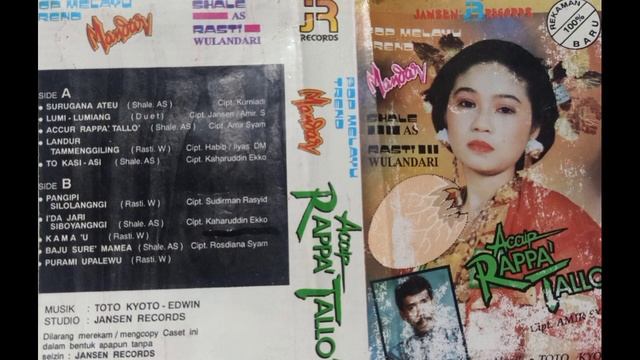 POP MELAYU
TREND
Mandar
SHALE
AS
RASTI
WULANDARI
SIDE A
• SURUGANA ATEU (Shale. AS) Cipt. Kurniadi
• LUMI - LUMIANG (Duet) Cipt. Jansen / Amir. S
• ACCUR RAPPA' TALLO' (Shale. AS) Cipt. Amir Syam
• LANDUR
TAMMENGGILING (Rasti. W) Cipt. Habib / Ilyas DM
• TO KASI - ASI (Shale. AS) Cipt. Kaharuddin Ekko
SIDE B
• PANGIPI
SILOLANGNGI (Rasti. W) Cipt. Sudirman Rasyid
• I'DA JARI
SIBOYANGNGI (Shale. AS) Cipt. Kaharuddin Ekko
• KAMA 'U (Rasti. W)
• BAJU SURE' MAMEA (Shale. AS) Cipt. Rosdiana Syam
• PURAMI UPALEWU (Rasti. W)
MUSIK : TOTO KYOTO - EDWIN
STUDIO : JANSEN RECORDS
Dilarang merekam / mengcopy Caset ini
dalam bentuk apapun tanpa
seizin : JANSEN RECORDS
JR
RECORDS
POP MELAYU
TREND
Mandar
Accur
RAPPA' TALLO
JANSEN JR RECORDS
REKAMAN
100%
BARU
POP MELAYU
TREND
Mandar
SHALE
AS
RASTI
WULANDARI
Accur
RAPPA'
TALLO
Cipt. AMIR
TOTO